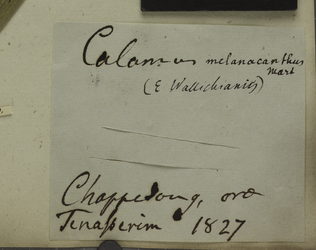 Calamus melanacanthus
Mart
(E Wallichianis)
Chappedong, ora
Tenaserim 1827